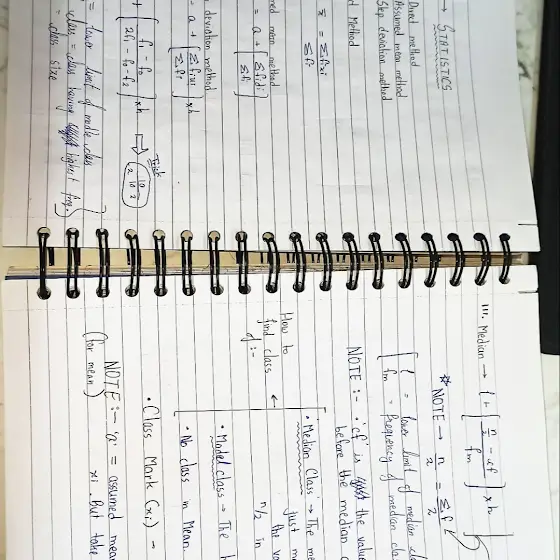 → STATISTICS
Direct method
Assumed mean method
Step deviation method
Method
x̄ = Σfixi
Σfi
mean method
= a + [Σfidi
Σfi]
deviation method
= a + [Σfiui
Σfi] × h
+ [f1 - f0
2f1 - f0 - f2] × h ⇒
Trick
10
2 10 2
= lower limit of modal class
class = class having highest freq.}
= class size
III. Median → l + [n/2 - cf
fm] × h
* NOTE → n/2 = Σf/2
[l = lower limit of median
fm = frequency of median
NOTE :- 'cf' is the value
before the median
How to
find class ←
of :-
• Median Class → The
just
the
n/2 in
• Modal class → The
• No class in Mean.
• Class Mark (xi) =
NOTE :- 'a' = assumed mean
(for mean) xi. But take